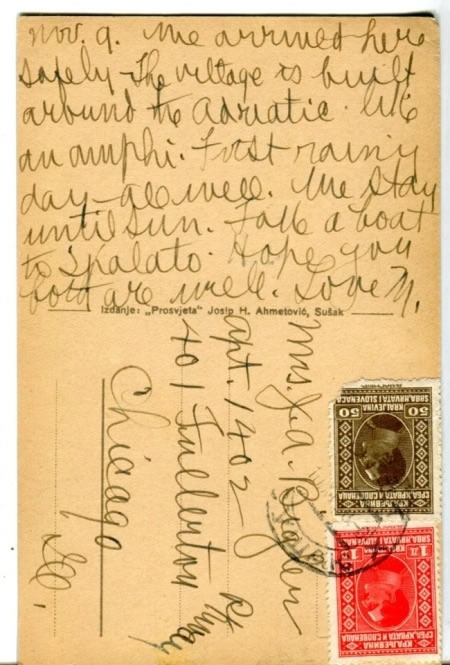 Nov. 9. We arrived here
safely. The village is built
around the Adriatic like
an amphi. First rainy
day - all well. We stay
until Sun. Take a boat
to Spalato. Hope you
both are well. Love M.
Izdanje: „Prosvjeta" Josip H. Ahmetović, Sušak
Mrs J. A.
Apt. 1402
401 Fullerton Pkway
Chicago
Ill.
50 50
KRALJEVINA
SRBA, HRVATA I SLOVENACA
КРАЉЕВИНА
СРБА, ХРВАТА И СЛОВЕНАЦА
1 1
KRALJEVINA
SRBA, HRVATA I SLOVENACA
КРАЉЕВИНА
СРБА, ХРВАТА И СЛОВЕНАЦА